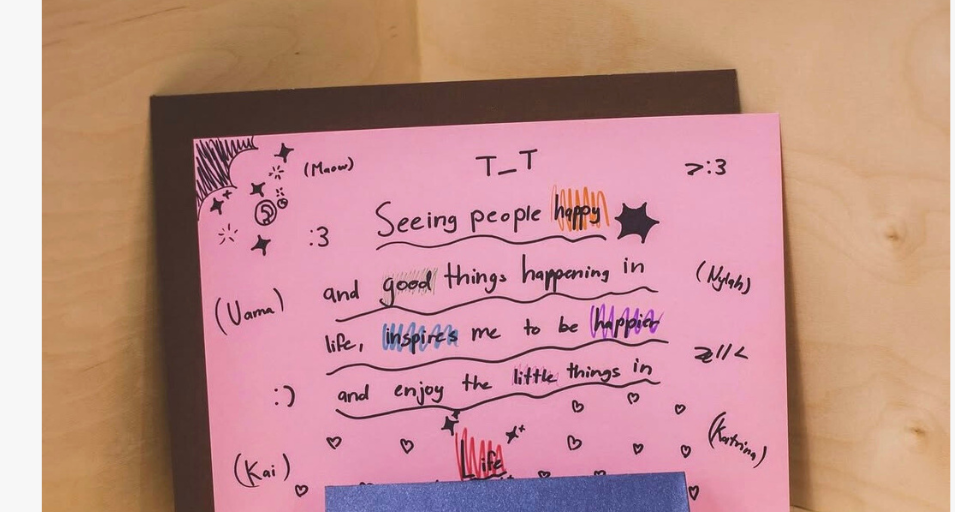 (Maow) T_T >:3
Seeing people happy
:3
and good things happening in
(Nylah)
(Vama)
life, inspires me to be happier
≥//<
and enjoy the little things in
:)
(Katrina)
Life
(Kai)